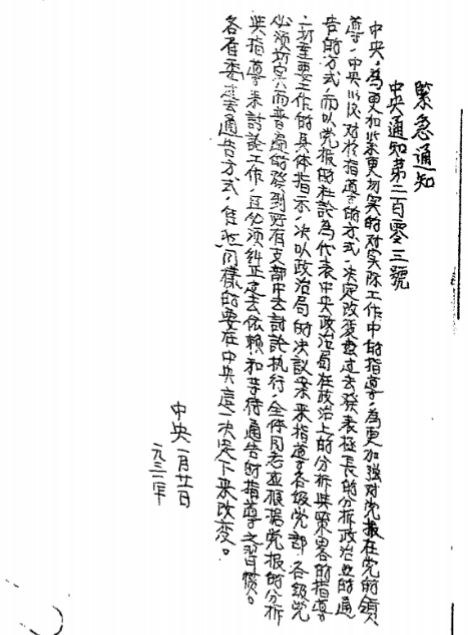 緊急通知
中央通知第二百零三號
中央，為更加緊更切实的对实际工作中的指導，為更加强对党报在党的領
導，中央以後对於指導的方式，决定改变過去發表極長的分析政治的通
告的方式，而以党报的社論為代表中央政治局在政治上的分析與策畧的指導。
一切重要工作的具体指示，决以政治局的决議案來指導各級党部，各級党
必須切实而普遍的發到所有支部中去討論执行，全体同志並根據党报的分析
與指導來討論工作，且必須糾正过去依賴和等待通告的指導之習慣。
各省委过去通告方式，同樣的要在中央這一决定下來改变。
中央一月廿一日
一九三一年